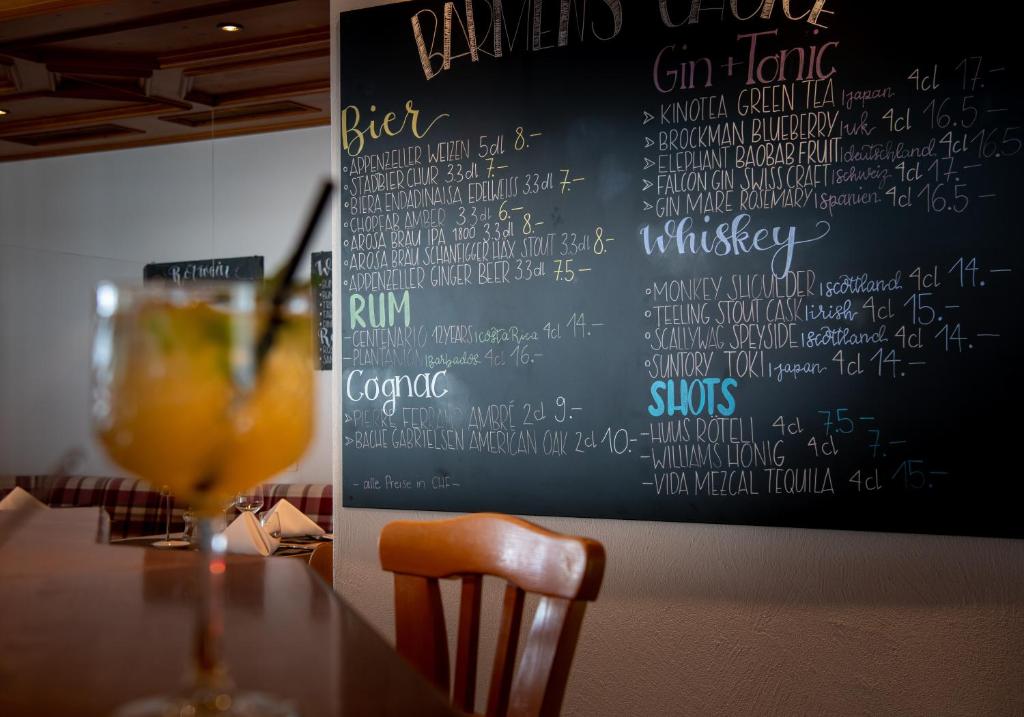 BARMENS CHOICE
Bier
APPENZELLER WEIZEN 5dl 8.-
STADTBIER CHUR 3.3 dl 7.-
BIERA ENGIADINAISA EDELWEISS 3.3 dl 7.-
CHOPFAB AMBER 3.3 dl 6.-
AROSA BRÄU IPA 1800 3.3 dl 8.-
AROSA BRÄU SCHANFIGGER HAX STOUT 3.3 dl 8.-
APPENZELLER GINGER BEER 3.3 dl 7.5-
RUM
-CENTENARIO 12YEARS | Costa Rica 4cl 14.-
- PLANTATION | Barbados 4cl 16.-
Cognac
> PIERRE FERRAND AMBRÉ 2cl 9.-
> BACHE GABRIELSEN AMERICAN OAK 2cl 10.-
- alle Preise in CHF -
Gin + Tonic
> KINOTEA GREEN TEA | japan 4cl 17.-
> BROCKMAN BLUEBERRY | uk 4cl 16.5
> ELEPHANT BAOBAB FRUIT | deutschland 4cl 16.5
> FALCON GIN SWISS CRAFT | schweiz 4cl 17.-
> GIN MARE ROSEMARY | spanien 4cl 16.5
Whiskey
MONKEY SHOULDER | scottland 4cl 14.-
TEELING STOUT CASK | irish 4cl 15.-
SCALLYWAG SPEYSIDE | scottland 4cl 14.-
SUNTORY TOKI | japan 4cl 14.-
SHOTS
-HUUS RÖTELI 4cl 7.5-
-WILLIAMS HONIG 4cl 7.-
-VIDA MEZCAL TEQUILA 4cl 15.-